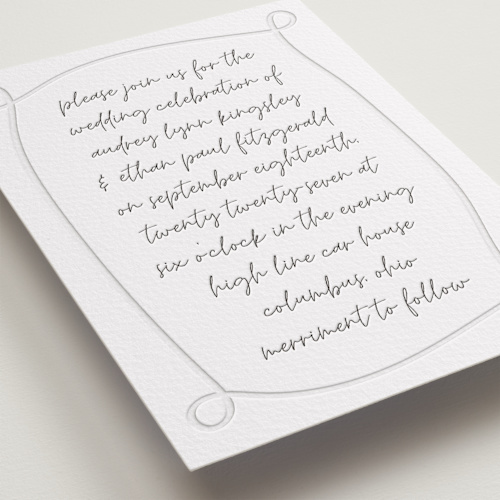 please join us for the
wedding celebration of
audrey lynn kingsley
& ethan paul fitzgerald
on september eighteenth,
twenty twenty-seven at
six o'clock in the evening
high line car house
columbus, ohio
merriment to follow